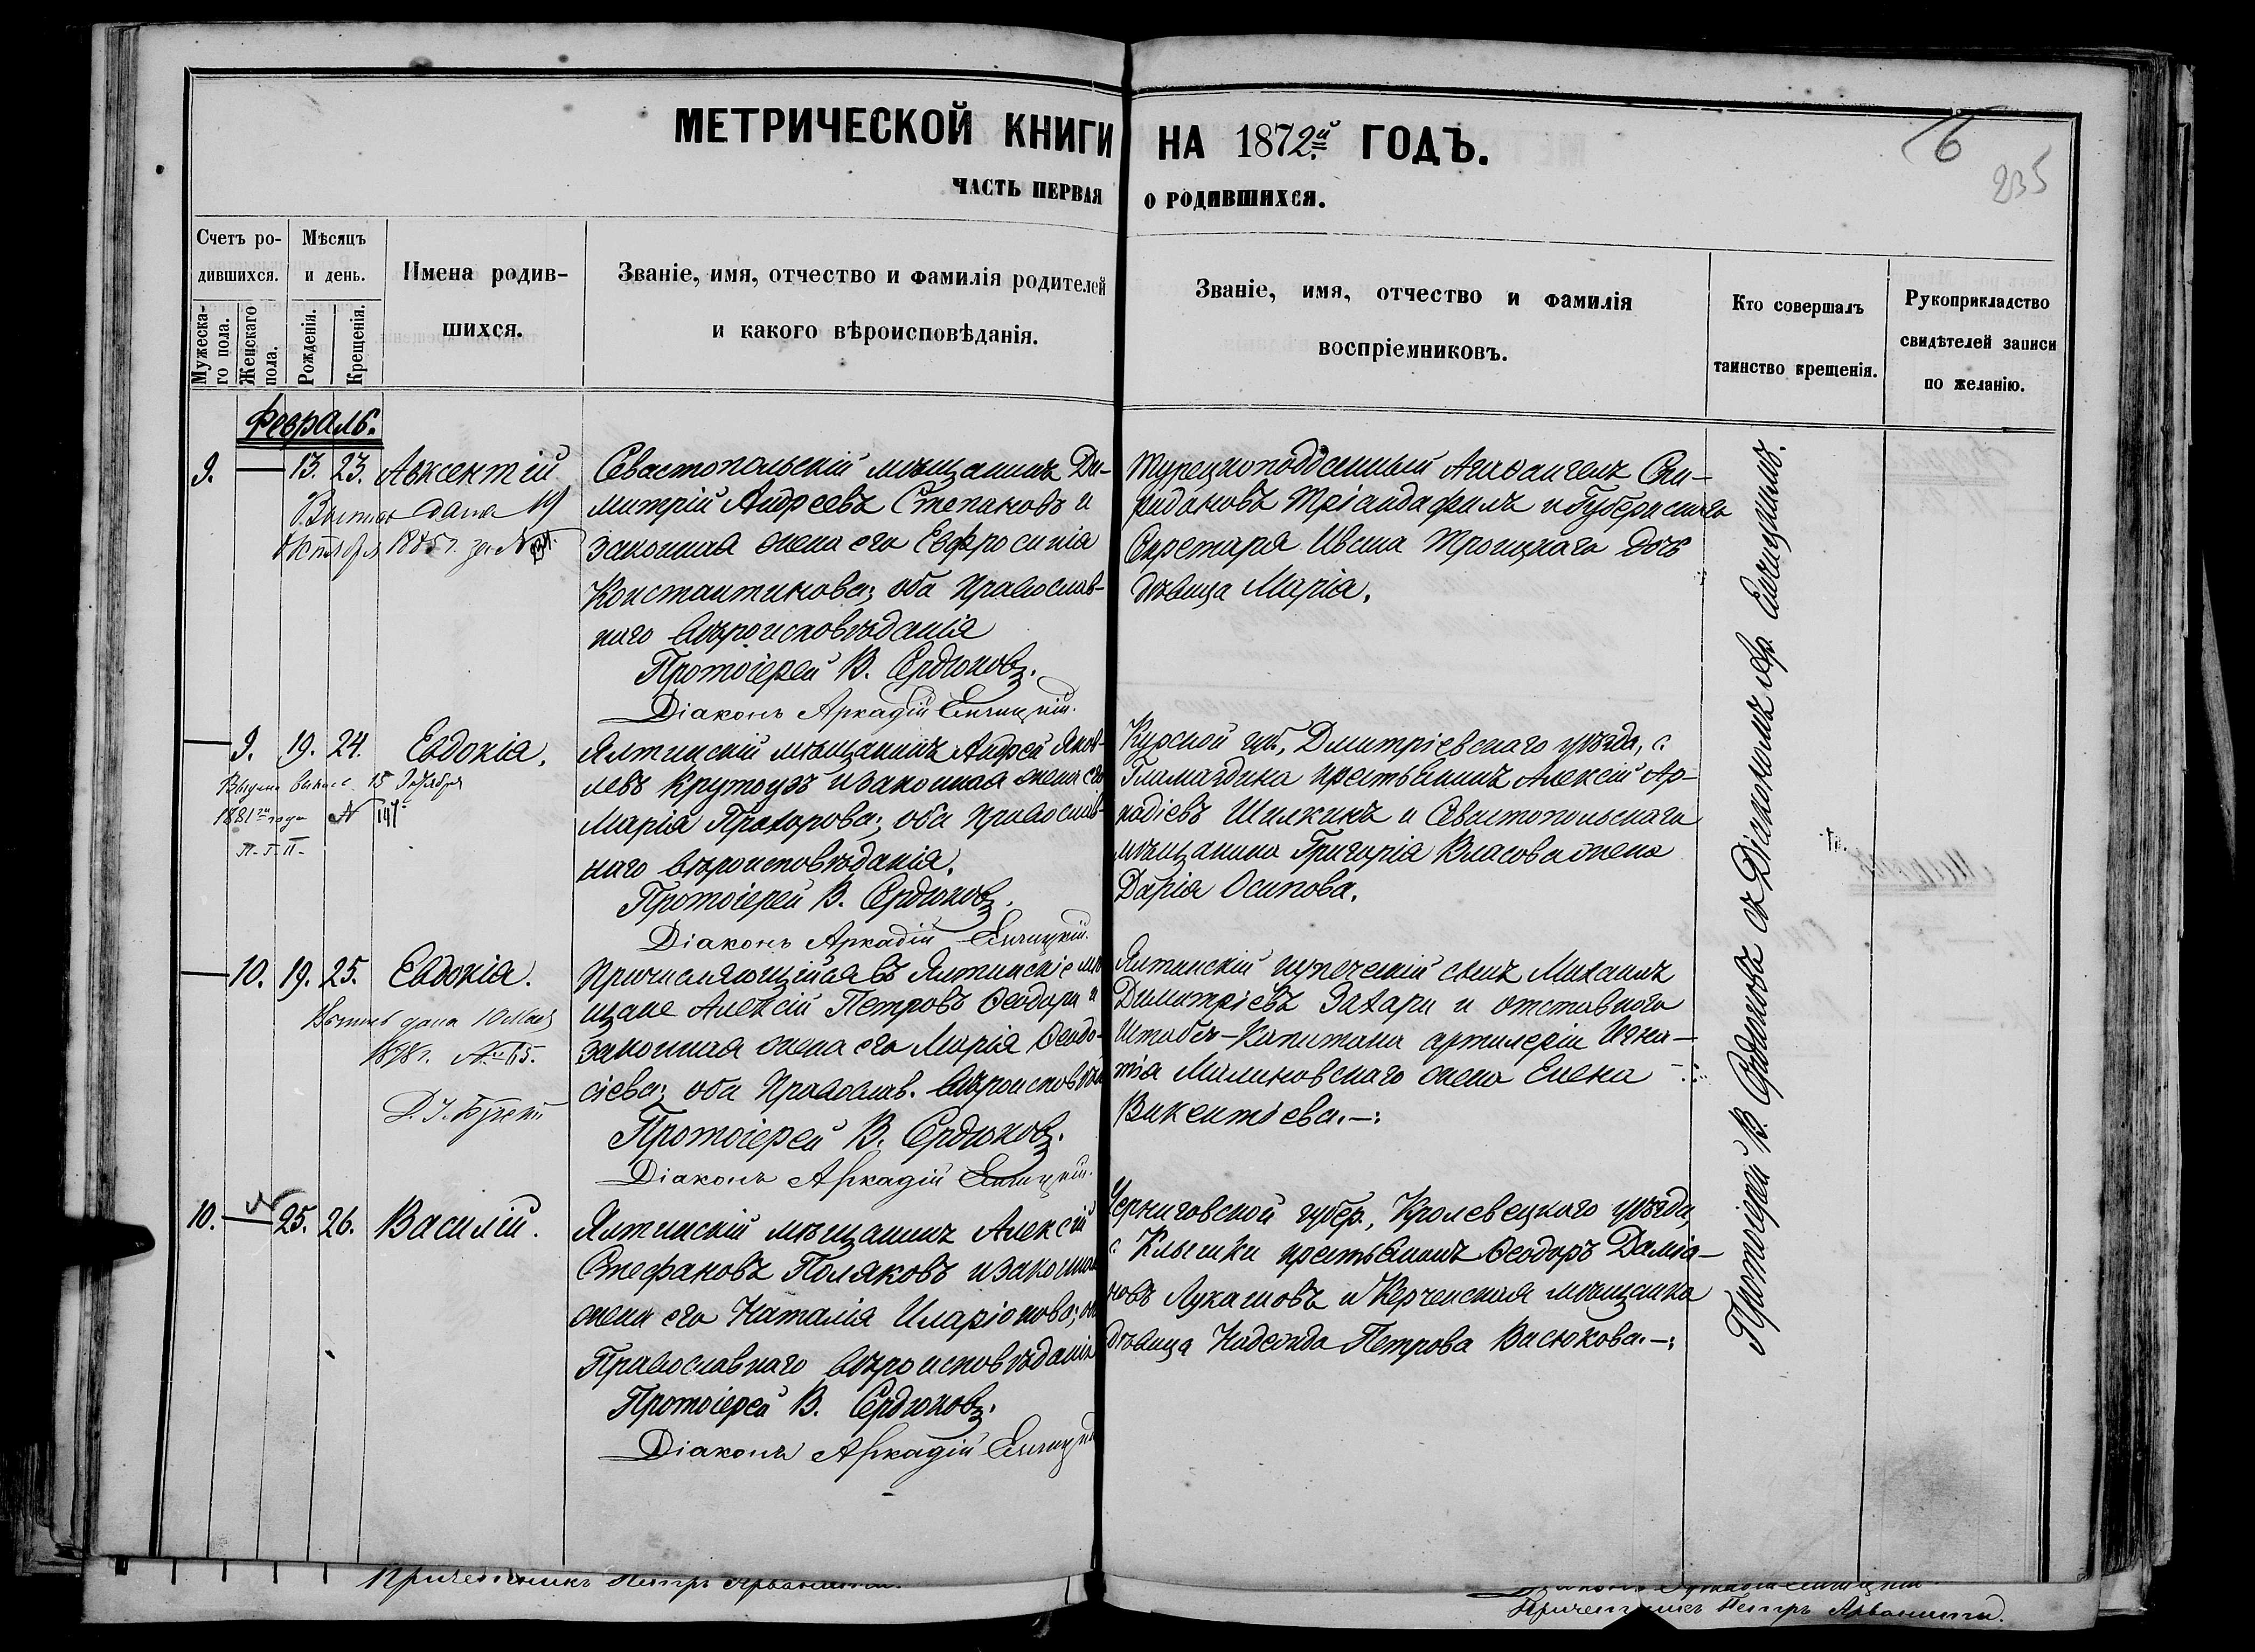 МЕТРИЧЕСКОЙ КНИГИ НА 1872й ГОДЪ.
ЧАСТЬ ПЕРВАЯ О РОДИВШИХСЯ.
6
235
Счетъ ро-
дившихся.
Мужеска-
го пола.
Женскаго
пола.
Мѣсяцъ
и день.
Рожденія.
Крещенія.
Имена родив-
шихся.
Званіе, имя, отчество и фамилія родителей
и какого вѣроисповѣданія.
Званіе, имя, отчество и фамилія
воспріемниковъ.
Кто совершалъ
таинство крещенія.
Рукоприкладство
свидѣтелей записи
по желанію.
Февраль.
9. — 13. 23. Авксентій
Выпись дана 19
Октября 1885 г. за №
Севастопольскій мѣщанинъ Ди-
митрій Андреевъ Степановъ и
законная жена его Евфросинія
Константинова; оба Православ-
наго вѣроисповѣданія
Протоіерей В. Сердюковъ.
Діаконъ Аркадій
Турецкоподданный Спи-
ридоновъ Тріандафилъ и Губернскаго
Секретаря Ивана Троицкаго дочь
дѣвица Марія.
— 9. 19. 24. Евдокія.
Выдана выпись 15
1881го года № 141
П. Г. П.
Ялтинскій мѣщанинъ Андрей Яков-
левъ Крутоузъ и законная жена его
Марія Прохорова; оба Православ-
наго вѣроисповѣданія.
Протоіерей В. Сердюковъ.
Діаконъ Аркадій
Курской губ., Дмитріевскаго уѣзда, с.
Гламаздина крестьянинъ Алексій Ар-
кадіевъ Шилкинъ и Севастопольскаго
мѣщанина Григорія Власова жена
Дарія Осипова.
— 10. 19. 25. Евдокія.
Выпись дана 10 Мая
1878 г. № 65.
Причисляющійся въ Ялтинскіе мѣ
щане Алексій Петровъ Ѳеодори и
законная жена его Марія Ѳеодо-
сіева; оба Православ. вѣроисповѣд
Протоіерей В. Сердюковъ.
Діаконъ Аркадій
Ялтинскій купеческій сынъ Михаилъ
Димитріевъ Захари и отставного
Штабсъ-Капитана артилеріи Игна-
тія Малиновскаго жена Елена
Викентіева.—:
10. — 25. 26. Василій.
Ялтинскій мѣщанинъ Алексій
Стефановъ Поляковъ и законная
жена его Наталія Иларіонова; оба
Православнаго вѣроисповѣданія
Протоіерей В. Сердюковъ.
Діаконъ Аркадій
Черниговской губер., Кролевецкаго уѣзда,
с. Клышки крестьянинъ Ѳеодоръ Даміа-
новъ Лукашовъ и Керченская мѣщанка
дѣвица Надежда Петрова Васюкова.—:
Протоіерей В. Сердюковъ съ Діакономъ Ар.
Причетникъ Петръ
Причетникъ Петръ